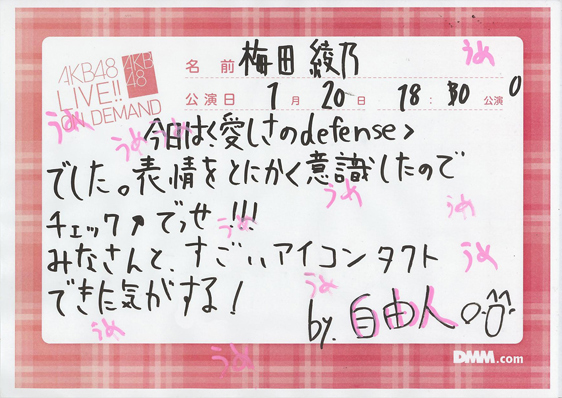 AKB48
LIVE!!
ON DEMAND
AKB
48
名前 梅田 綾乃
うめ
公演日 1月 20日 18:30 公演
うめ
うめ
うめ
今日はく愛しさのdefense>
でした。表情をとにかく意識したので
うめ
うめ
チェック↗でっせ!!!
うめ
みなさんと、すごいアイコンタクト
うめ
うめ
できた気がする!
by. 自由人
うめ
うめ
DMM.com